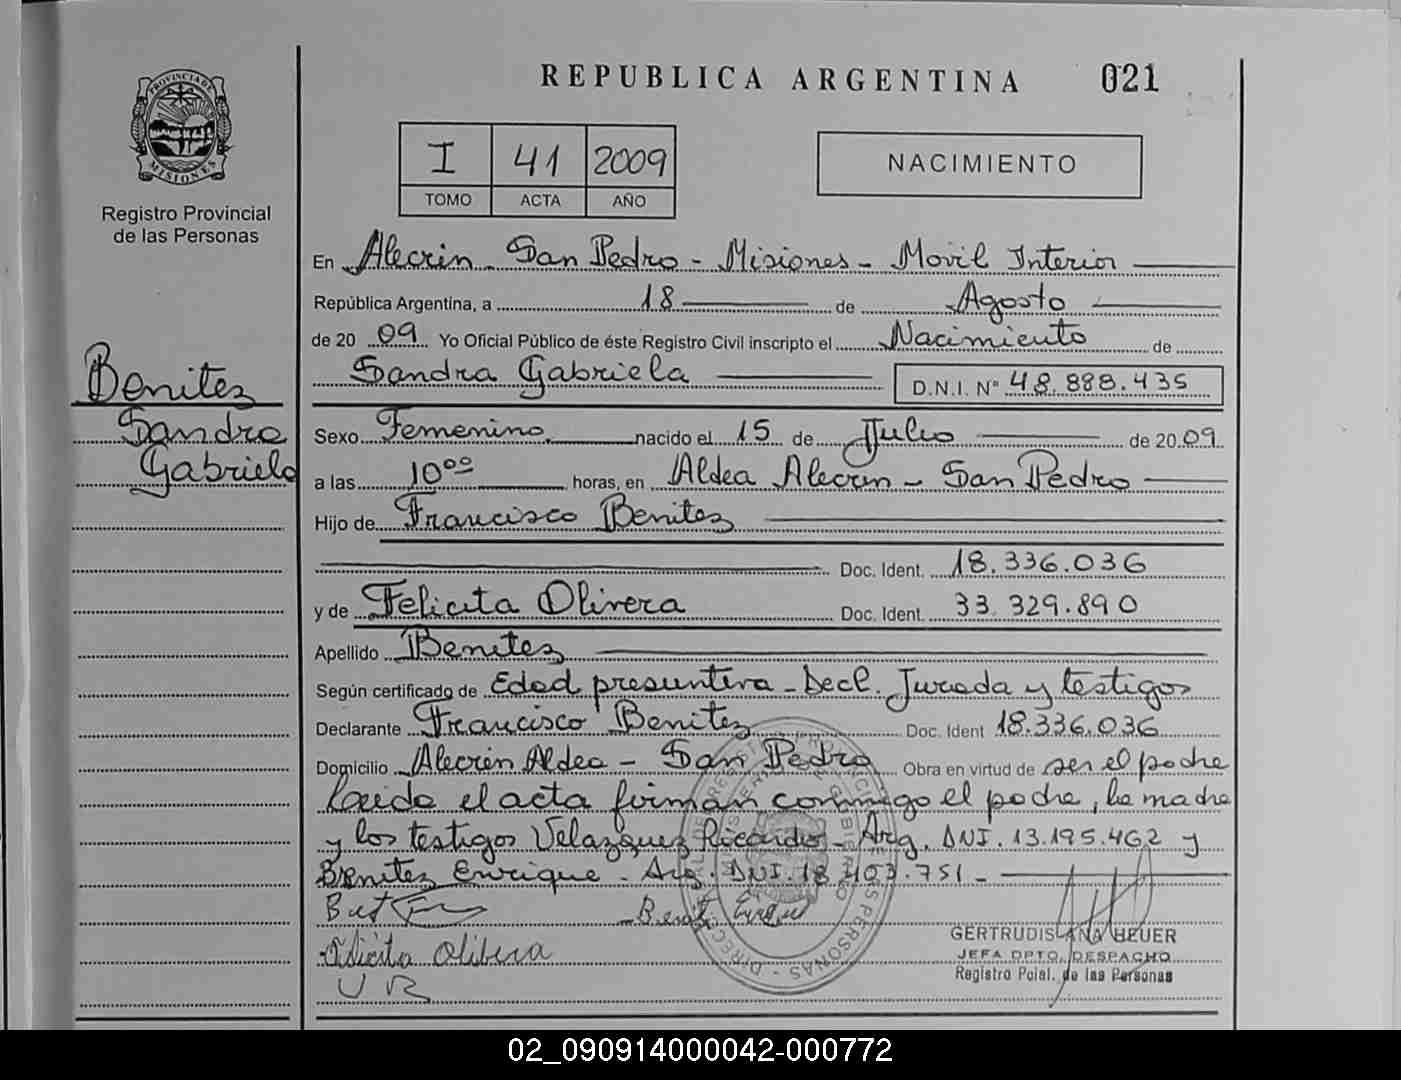 REPUBLICA ARGENTINA 021
PROVINCIA DE MISIONES
Registro Provincial
de las Personas
I 41 2009
TOMO ACTA AÑO
NACIMIENTO
En Alecrin - San Pedro - Misiones - Movil Interior
República Argentina, a 18 de Agosto
de 20 09 Yo Oficial Público de éste Registro Civil inscripto el Nacimiento de
Sandra Gabriela D.N.I. N° 48.888.435
Benitez
Sandra
Gabriela
Sexo Femenino nacido el 15 de Julio de 20 09
a las 10 00 horas, en Aldea Alecrin - San Pedro
Hijo de Francisco Benitez
Doc. Ident. 18.336.036
y de Felicita Olivera Doc. Ident. 33.329.890
Apellido Benitez
Según certificado de Edad presuntiva - Decl. Jurada y testigos
Declarante Francisco Benitez Doc. Ident 18.336.036
Domicilio Alecrin Aldea - San Pedro Obra en virtud de ser el padre
Leida el acta firman conmigo el padre, la madre
y los testigos Velazquez Ricardo - Arg. DNI. 13.195.462 y
Benitez Enrique - Arg. DNI. 18.403.751 -
Felicita Olibera
VR
GERTRUDIS ANA HEUER
JEFA DPTO. DESPACHO
Registro Pcial. de las Personas
02_090914000042-000772